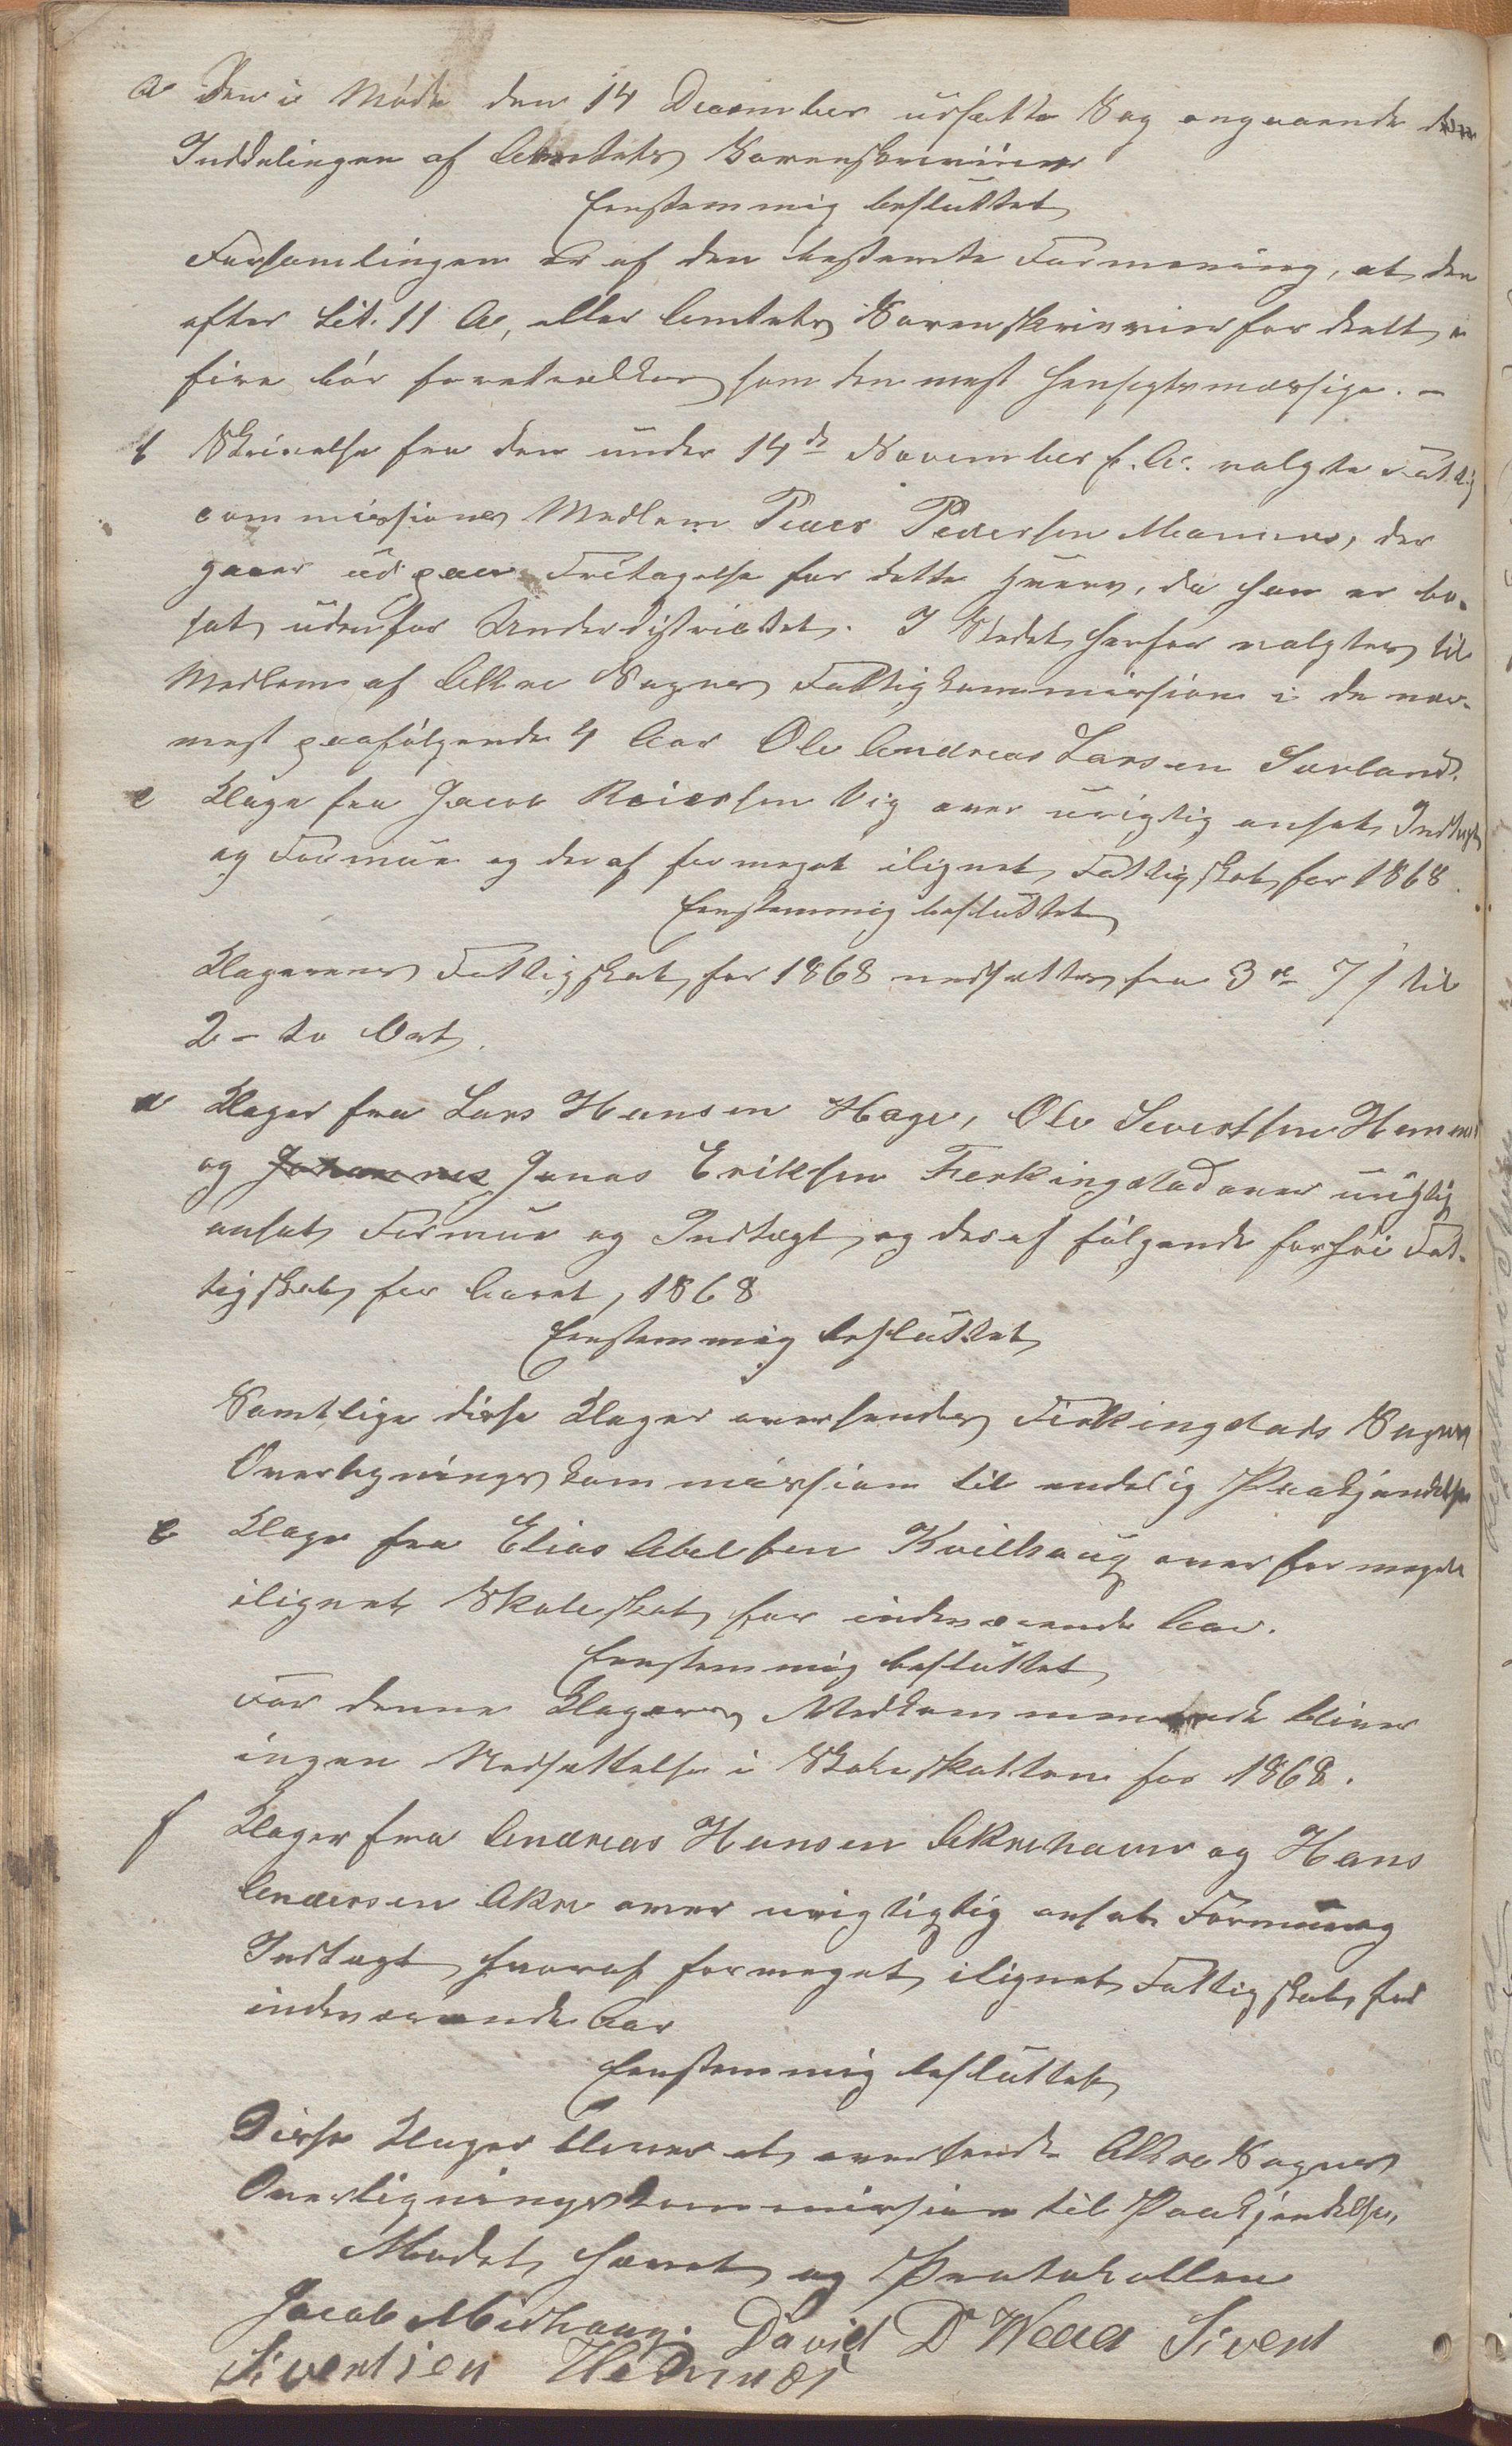 a Den i Møde den 14 December udsatte Sag angaaende
Inddelingen af Amtets Sorenskriverier
Eenstemmig besluttet
Forsamlingen er af den bestemte Formening, at den
efter Lit. 11 A, eller Amtets Sorenskriverier fordeelt i
fire bør foretrækkes som den mest hensigtsmæssige. –
b Skrivelse fra den under 14de November f. A. valgte Fattig
commissions Medlem Peder Pedersen Mannes, der
gaaer ud paa Fritagelse for dette Hverv, da han er bo-
sat udenfor Underdistrictet. I Stedet herfor valgtes til
Medlem af Akre Sogns Fattigkommission i de nær-
mest paafølgende 4 Aar Ole Andreas Larsen Sævland.
c Klage fra Jacob Reiersen Vig over urigtig ansat Indtægt
og Formue og deraf formeget ilignet Fattigskat for 1868.
Eenstemmig besluttet
Klagerens Fattigskat for 1868 nedsættes fra 3 ort 7 s til
2 – to Ort.
d Klager fra Lars Hansen Hage, Ole Sivertsen Hemnes
og Johannes Jonas Eriksen Ferkingstad over urigtig
ansat Formue og Indtægt og deraf følgende forhøi Fat-
tigskat for Aaret 1868
Eenstemmig besluttet
Samtlige disse Klager oversendes Ferkingstads Sogns
Overligningskommission til endelig Paakjendelse
e Klage fra Elias Abelsen Kvilhaug over for meget
ilignet Skoleskat for indeværende Aar.
Eenstemmig besluttet
For denne Klagers Vedkommende bliver
ingen Nedsættelse i Skoleskatten for 1868.
f Klager fra Andreas Hansen Akrehavn og Hans
Andersen Akre over urigtigtig ansat Formue og
Indtægt hvoraf formeget ilignet Fattigskat for
indeværende Aar
Eenstemmig besluttet
Disse Klager bliver at oversende Akre Sogns
Overligningskommission til Paakjendelse.
Mødet hævet og Protokollen
Jacob Midhaug. David D Weaa Sivert
Sivertsen Hemnes